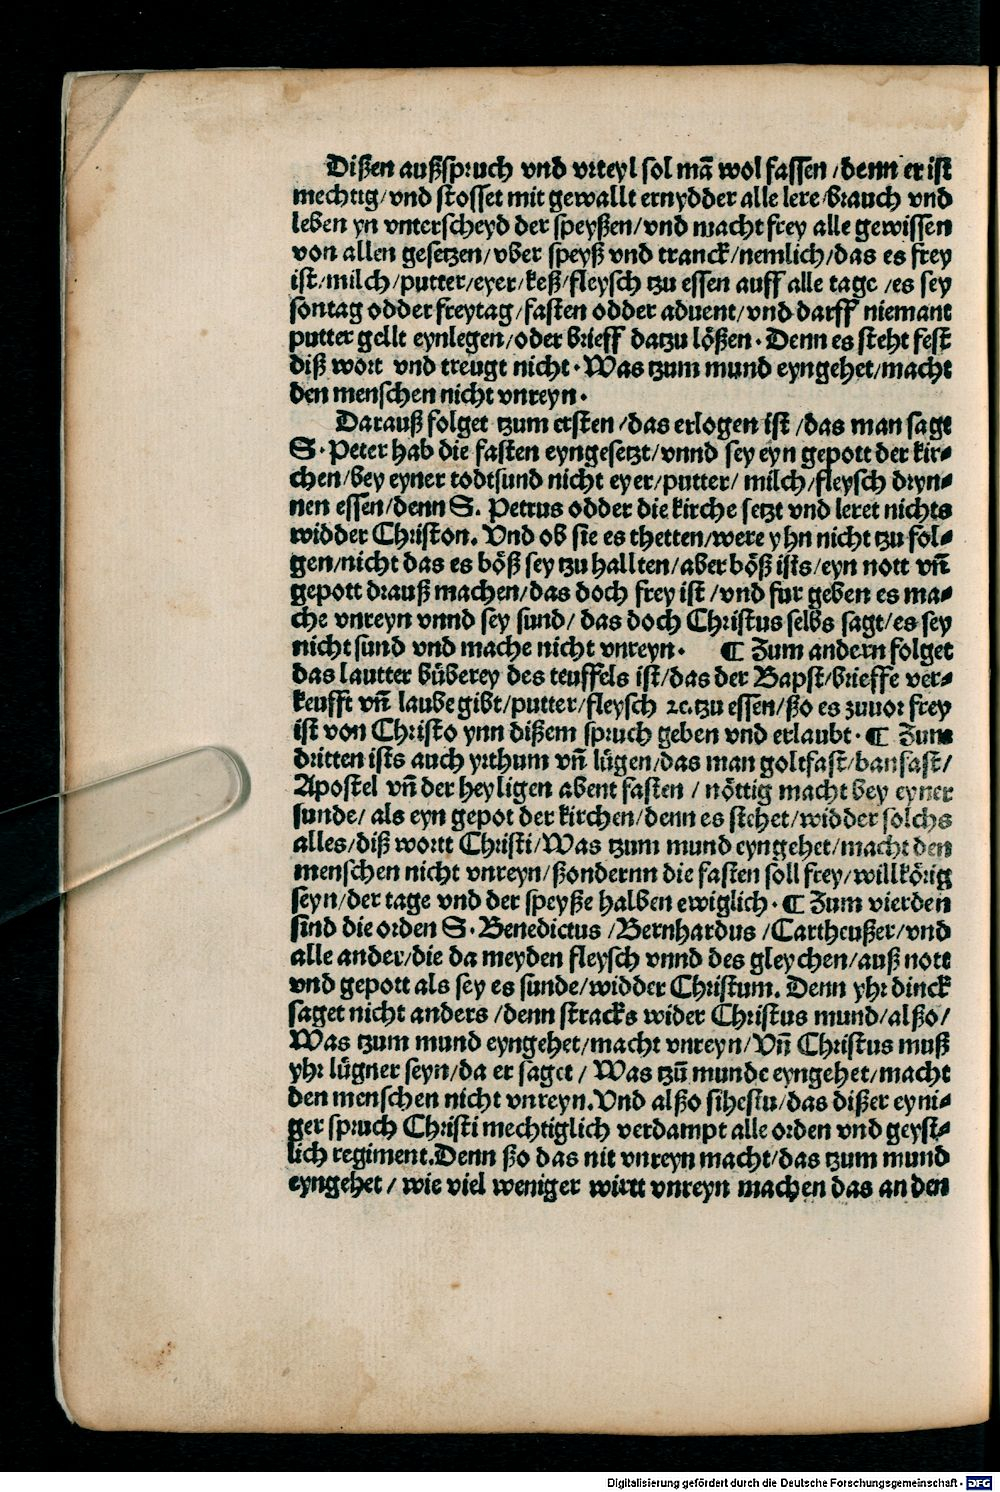 Dißen außspruch vnd vrteyl sol mā wol fassen /denn er ist
mechtig/vnd stosset mit gewallt ernydder alle lere/brauch vnd
leben yn vnterscheyd der speyßen/vnd macht frey alle gewissen
von allen gesetzen/vber speyß vnd tranck/nemlich/das es frey
ist/milch/putter/eyer/keß/fleysch tzu essen auff alle tage /es sey
sontag odder freytag/fasten odder aduent/vnd darff niemant
putter gellt eynlegen/oder brieff datzu lößen. Denn es steht fest
diß wort vnd treugt nicht. Was tzum mund eyngehet/macht
den menschen nicht vnreyn.
Darauß folget tzum ersten /das erlogen ist /das man sagt
S. Peter hab die fasten eyngesetzt/vnnd sey eyn gepott der kir-
chen/bey eyner todtsund nicht eyer/putter/ milch/fleysch dryn-
nen essen/denn S. Petrus odder die kirche setzt vnd leret nichts
widder Christon. Vnd ob sie es thetten/were yhn nicht tzu fol-
gen/nicht das es böß sey tzu hallten/aber böß ists/eyn nott vñ
gepott drauß machen/das doch frey ist /vnd fur geben es ma-
che vnreyn vnnd sey sund/ das doch Christus selbs sagt/es sey
nicht sund vnd mache nicht vnreyn. ¶ Zum andern folget
das lautter büberey des teuffels ist/das der Bapst/brieffe ver-
keufft vñ laube gibt/putter/fleysch ꝛc.tzu essen/ßo es zuuor frey
ist von Christo ynn dißem spruch geben vnd erlaubt. ¶ Zum
dritten ists auch yrthum vñ lügen/das man goltfast/banfast/
Apostel vñ der heyligen abent fasten / nöttig macht bey eyner
sunde/ als eyn gepot der kirchen/denn es stehet/widder solchs
alles/diß wortt Christi/Was tzum mund eyngehet/macht den
menschen nicht vnreyn/ßondernn die fasten soll frey/willkörig
seyn/der tage vnd der speyße halben ewiglich. ¶ Zum vierden
sind die orden S. Benedictus /Bernhardus /Cartheußer/vnd
alle ander/die da meyden fleysch vnnd des gleychen/auß nott
vnd gepott als sey es sunde/widder Christum. Denn yhr dinck
saget nicht anders /denn stracks wider Christus mund/alßo/
Was tzum mund eyngehet/macht vnreyn/Vñ Christus muß
yhr lügner seyn/da er saget / Was tzū munde eyngehet/macht
den menschen nicht vnreyn.Vnd alßo sihestu/das dißer eyni-
ger spruch Christi mechtiglich verdampt alle orden vnd geyst-
lich regiment.Denn ßo das nit vnreyn macht/das tzum mund
eyngehet / wie viel weniger wirtt vnreyn machen das an den
Digitalisierung gefördert durch die Deutsche Forschungsgemeinschaft - DFG